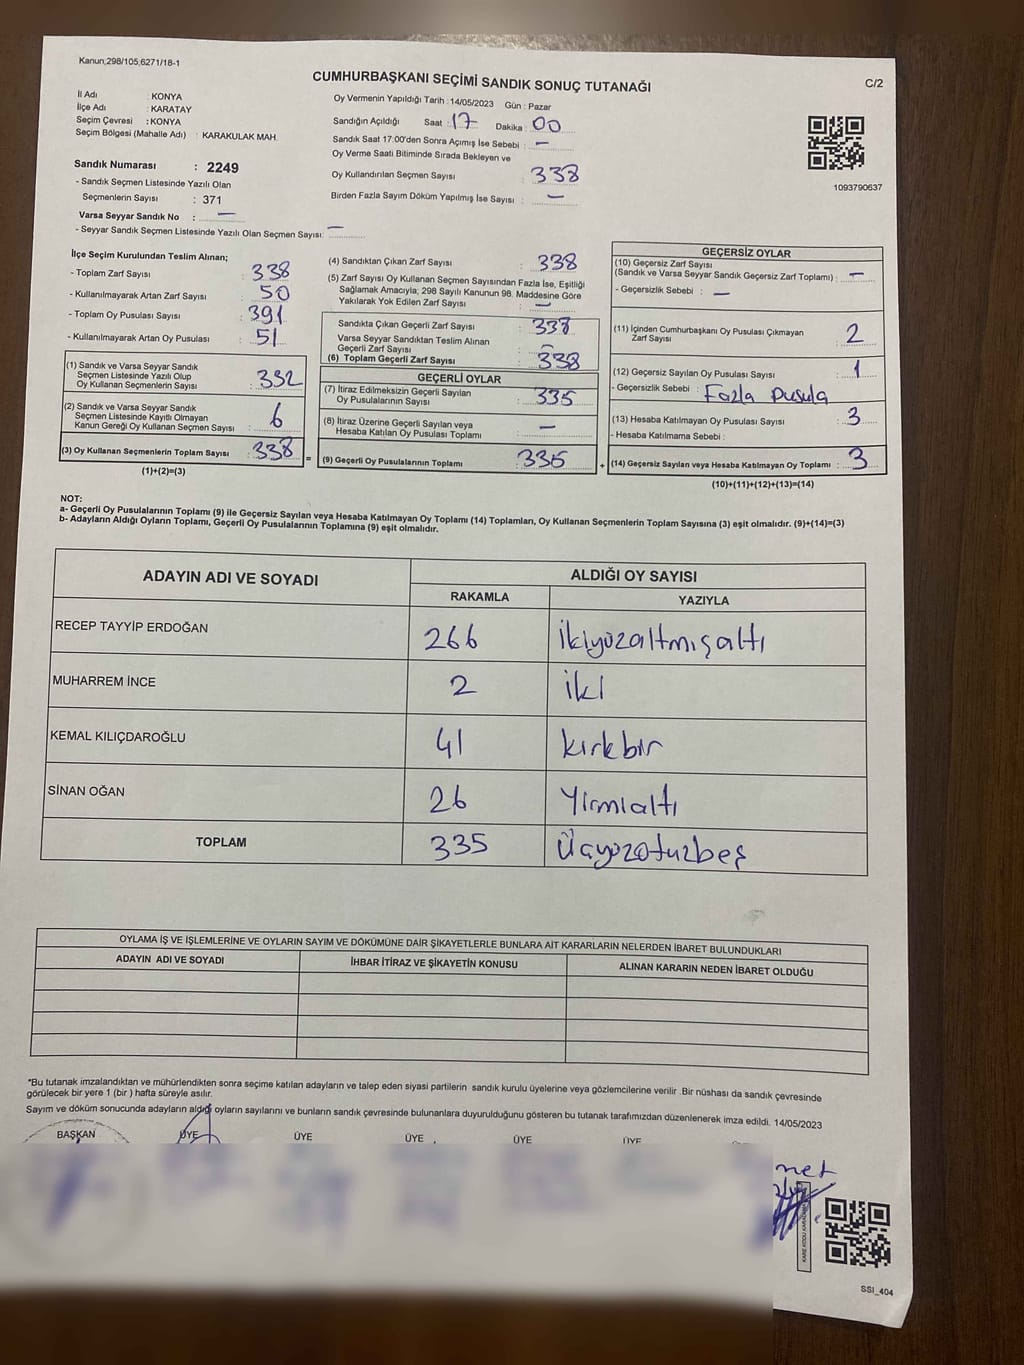 Kanun,298/105,6271/18-1
CUMHURBAŞKANI SEÇİMİ SANDIK SONUÇ TUTANAĞI
C/2
İl Adı : KONYA
İlçe Adı : KARATAY
Seçim Çevresi : KONYA
Seçim Bölgesi (Mahalle Adı) : KARAKULAK MAH.
Sandık Numarası : 2249
- Sandık Seçmen Listesinde Yazılı Olan
Seçmenlerin Sayısı : 371
Varsa Seyyar Sandık No : —
- Seyyar Sandık Seçmen Listesinde Yazılı Olan Seçmen Sayısı: —
Oy Vermenin Yapıldığı Tarih : 14/05/2023 Gün : Pazar
Sandığın Açıldığı Saat : 17 Dakika : 00
Sandık Saat 17:00'den Sonra Açımış İse Sebebi : —
Oy Verme Saati Bitiminde Sırada Bekleyen ve
Oy Kullandırılan Seçmen Sayısı : 338
Birden Fazla Sayım Döküm Yapılmış İse Sayısı : —
1093790637
İlçe Seçim Kurulundan Teslim Alınan;
- Toplam Zarf Sayısı : 338
- Kullanılmayarak Artan Zarf Sayısı : 50
- Toplam Oy Pusulası Sayısı : 391
- Kullanılmayarak Artan Oy Pusulası : 51
(1) Sandık ve Varsa Seyyar Sandık
Seçmen Listesinde Yazılı Olup
Oy Kullanan Seçmenlerin Sayısı : 332
(2) Sandık ve Varsa Seyyar Sandık
Seçmen Listesinde Kayıtlı Olmayan
Kanun Gereği Oy Kullanan Seçmen Sayısı : 6
(3) Oy Kullanan Seçmenlerin Toplam Sayısı : 338
(1)+(2)=(3)
(4) Sandıktan Çıkan Zarf Sayısı : 338
(5) Zarf Sayısı Oy Kullanan Seçmen Sayısından Fazla İse, Eşitliği
Sağlamak Amacıyla; 298 Sayılı Kanunun 98. Maddesine Göre
Yakılarak Yok Edilen Zarf Sayısı : —
Sandıkta Çıkan Geçerli Zarf Sayısı : 338
Varsa Seyyar Sandıktan Teslim Alınan
Geçerli Zarf Sayısı : —
(6) Toplam Geçerli Zarf Sayısı : 338
GEÇERLİ OYLAR
(7) İtiraz Edilmeksizin Geçerli Sayılan
Oy Pusulalarının Sayısı : 335
(8) İtiraz Üzerine Geçerli Sayılan veya
Hesaba Katılan Oy Pusulası Toplamı : —
= (9) Geçerli Oy Pusulalarının Toplamı : 335
GEÇERSİZ OYLAR
(10) Geçersiz Zarf Sayısı
(Sandık ve Varsa Seyyar Sandık Geçersiz Zarf Toplamı) : —
- Geçersizlik Sebebi : —
(11) İçinden Cumhurbaşkanı Oy Pusulası Çıkmayan
Zarf Sayısı : 2
(12) Geçersiz Sayılan Oy Pusulası Sayısı : 1
- Geçersizlik Sebebi : Fazla pusula
(13) Hesaba Katılmayan Oy Pusulası Sayısı : 3
- Hesaba Katılmama Sebebi :
+ (14) Geçersiz Sayılan veya Hesaba Katılmayan Oy Toplamı : 3
(10)+(11)+(12)+(13)=(14)
NOT:
a- Geçerli Oy Pusulalarının Toplamı (9) ile Geçersiz Sayılan veya Hesaba Katılmayan Oy Toplamı (14) Toplamları, Oy Kullanan Seçmenlerin Toplam Sayısına (3) eşit olmalıdır. (9)+(14)=(3)
b- Adayların Aldığı Oyların Toplamı, Geçerli Oy Pusulalarının Toplamına (9) eşit olmalıdır.
ADAYIN ADI VE SOYADI
ALDIĞI OY SAYISI
RAKAMLA YAZIYLA
RECEP TAYYİP ERDOĞAN 266 ikiyüzaltmışaltı
MUHARREM İNCE 2 iki
KEMAL KILIÇDAROĞLU 41 kırkbir
SİNAN OĞAN 26 Yirmialtı
TOPLAM 335 Üçyüzotuzbeş
OYLAMA İŞ VE İŞLEMLERİNE VE OYLARIN SAYIM VE DÖKÜMÜNE DAİR ŞİKAYETLERLE BUNLARA AİT KARARLARIN NELERDEN İBARET BULUNDUKLARI
ADAYIN ADI VE SOYADI İHBAR İTİRAZ VE ŞİKAYETİN KONUSU ALINAN KARARIN NEDEN İBARET OLDUĞU
*Bu tutanak imzalandıktan ve mühürlendikten sonra seçime katılan adayların ve talep eden siyasi partilerin sandık kurulu üyelerine veya gözlemcilerine verilir .Bir nüshası da sandık çevresinde
görülecek bir yere 1 (bir ) hafta süreyle asılır.
Sayım ve döküm sonucunda adayların aldığı oyların sayılarını ve bunların sandık çevresinde bulunanlara duyurulduğunu gösteren bu tutanak tarafımızdan düzenlenerek imza edildi. 14/05/2023
BAŞKAN ÜYE ÜYE ÜYE ÜYE ÜYE
SSİ_404